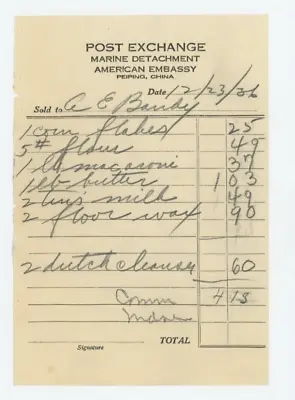 POST EXCHANGE
MARINE DETACHMENT
AMERICAN EMBASSY
PEIPING, CHINA
Date 12/23/36
Sold to A E Bandy
1 corn flakes 25
5# flour 49
1 lb macaroni 37
1 lb butter 1 03
2 tins milk 49
2 floor wax 90
2 dutch cleanser 60
Comm 4 13
Signature TOTAL